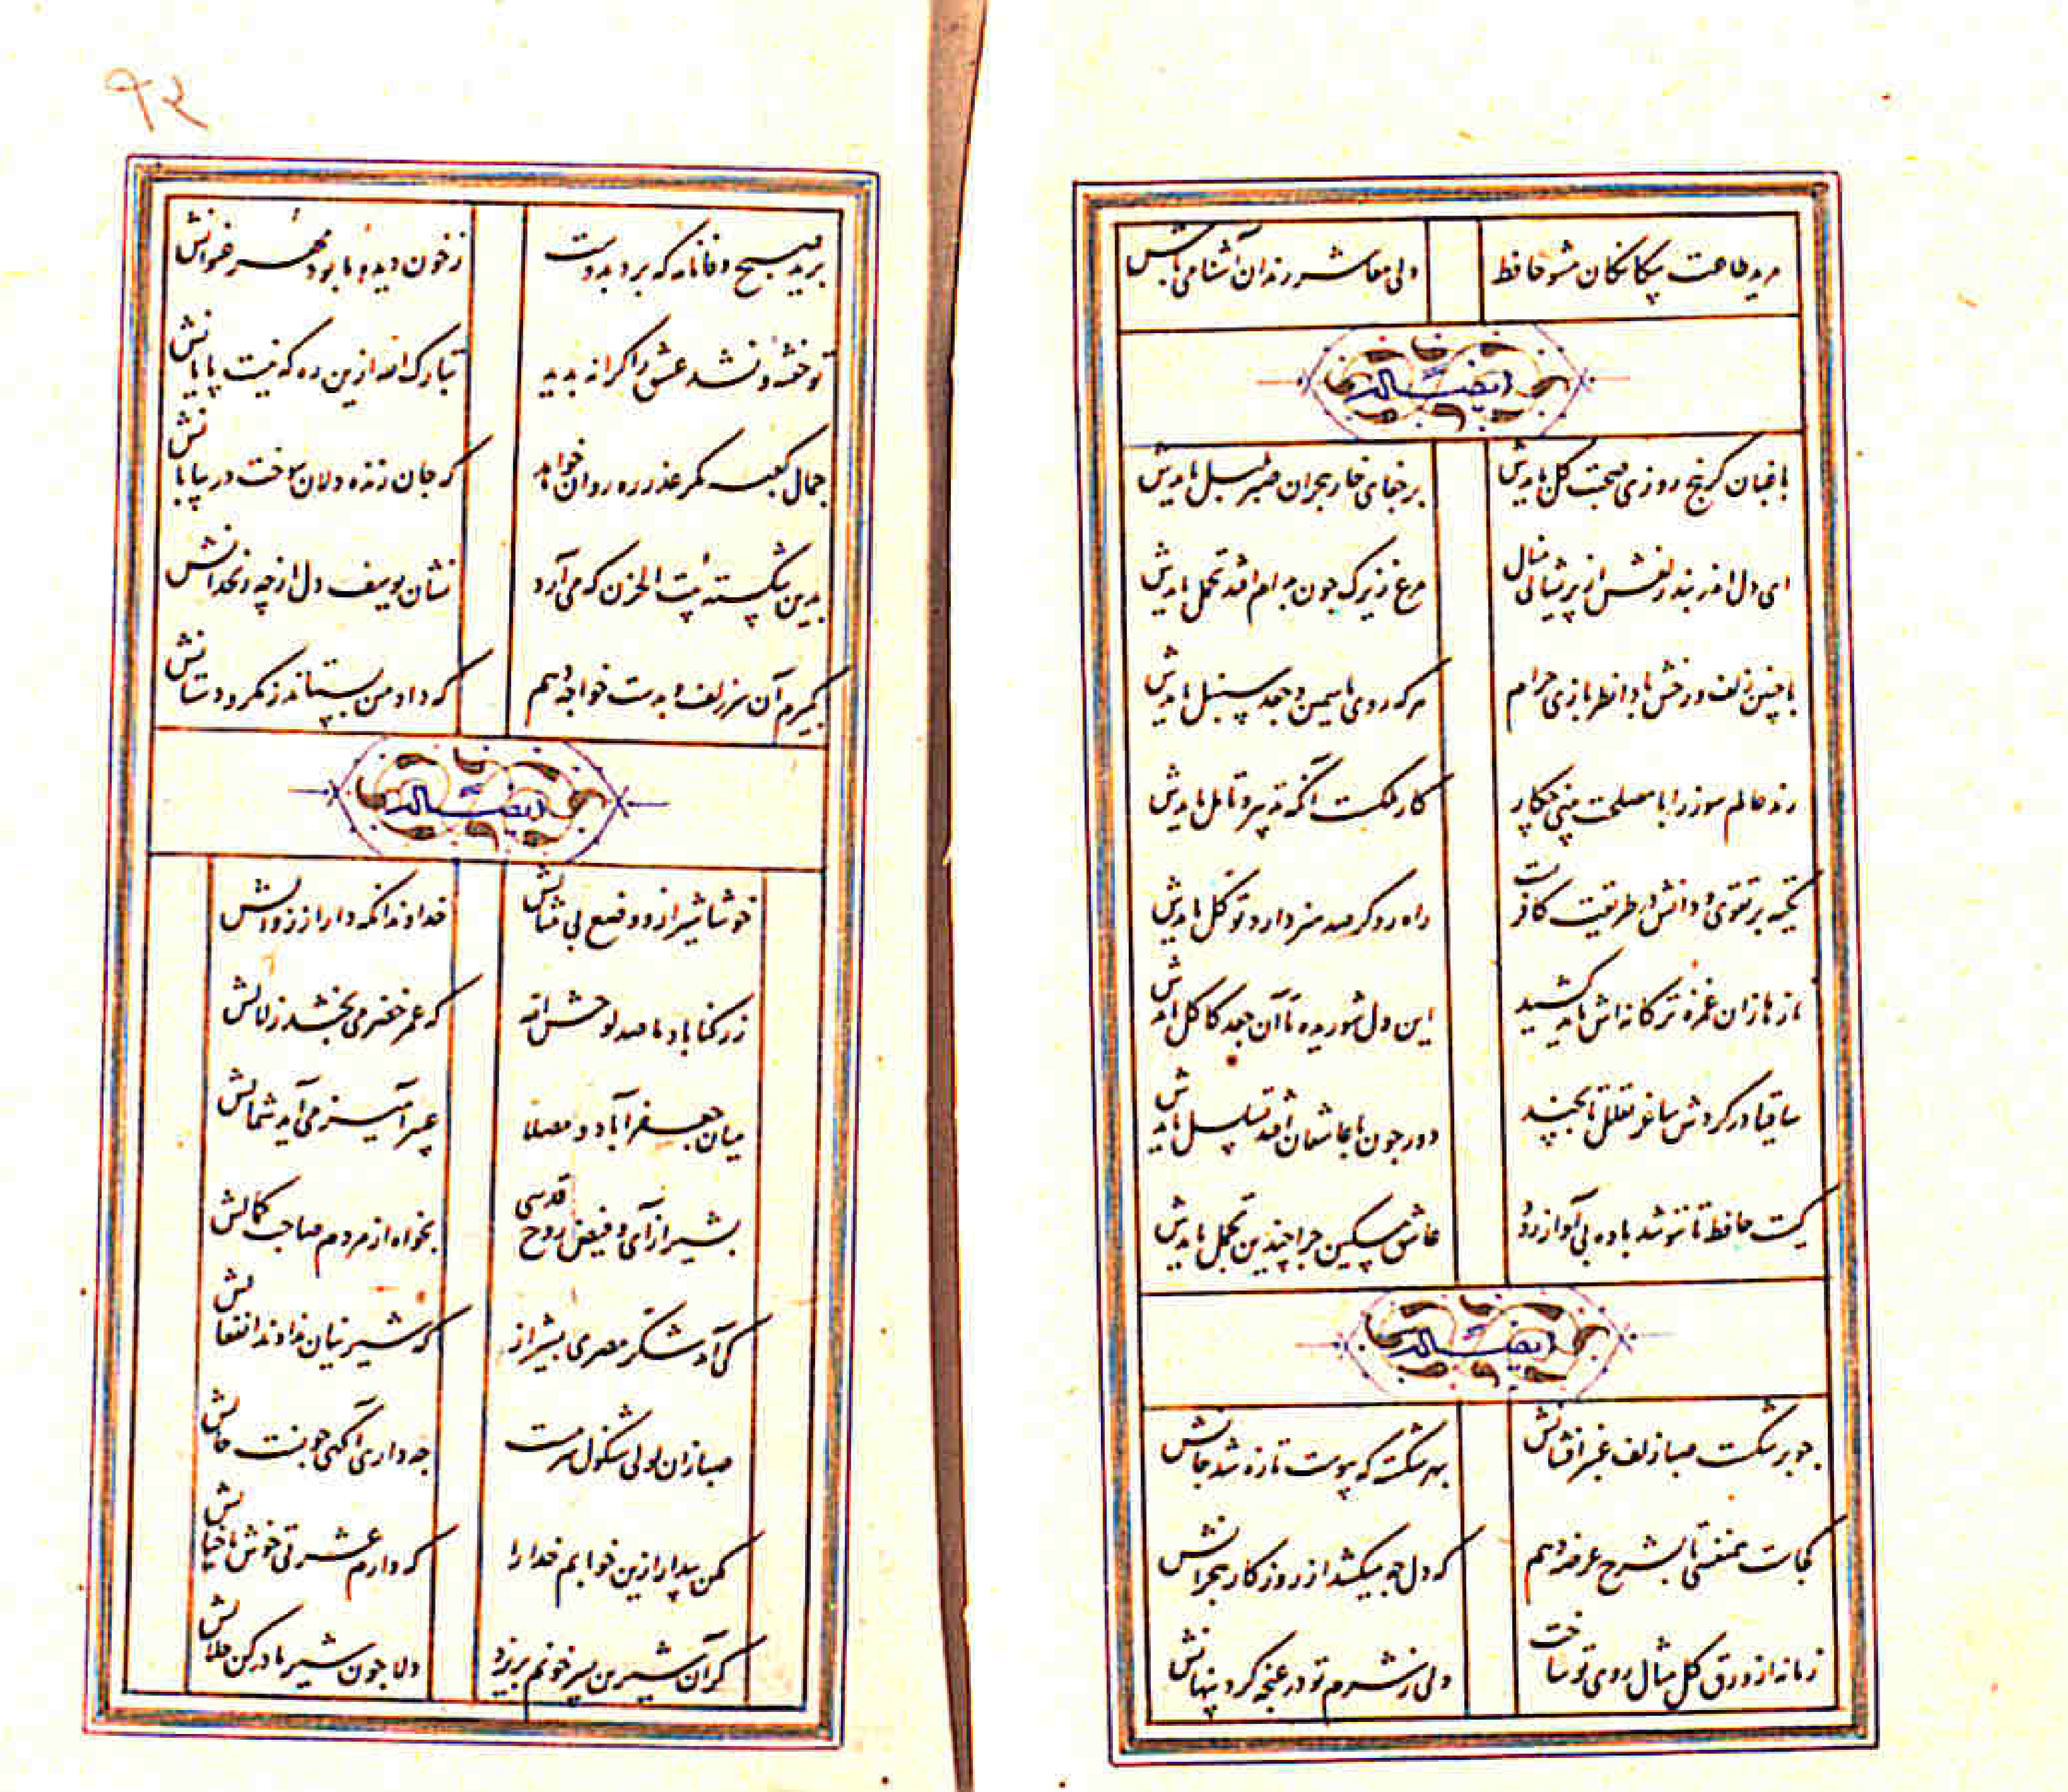 مرید طاعت بیکانکان مشو حافظ
ولی معاشر رندان آشنا می باش
ایضاً له
باغبان کر پنج روزی صحبت کل بایدش
بر جفای خار هجران صبر بلبل بایدش
ای دل اندر بند زلفش از پریشانی منال
مرغ زیرک چون بدام افتد تحمل بایدش
با چنین زلف و رخش بادا نظربازی حرام
هر که روی یاسمین و جعد سنبل بایدش
رند عالم سوز را با مصلحت بینی چکار
کار ملکست آنکه تدبیر و تامل بایدش
تکیه بر تقوی و دانش در طریقت کافریست
راه رو کر صد هنر دارد توکل بایدش
نازها زان غمزه ترکانه اش باید کشید
این دل شوریده تا آن جعد کاکل بایدش
ساقیا در کردش ساغر تعلل تا بچند
دور چون با عاشقان افتد تسلسل بایدش
کیست حافظ تا ننوشد باده بی آواز رود
عاشق مسکین چرا چندین تجمل بایدش
ایضاً له
چو بر شکست صبا زلف عنبر افشانش
بهر شکسته که پیوست تازه شد جانش
کجاست همنفسی تا بشرح عرضه دهم
که دل چه میکشد از روزکار هجرانش
زمانه از ورق کل مثال روی تو ساخت
ولی ز شرم تو در غنچه کرد پنهانش
۹۲
برید صبح وفانامه که برد بدوست
ز خون دیده ما بود مهر عنوانش
تو خفته و نشد عشق را کرانه پدید
تبارک الله ازین ره که نیست پایانش
جمال کعبه مکر عذر ره روان خواهد
که جان زنده دلان سوخت در بیابانش
بدین شکسته بیت الحزن که می آرد
نشان یوسف دل از چه زنخدانش
بکیرم آن سر زلف و بدست خواجه دهم
که داد من بستاند ز مکر و دستانش
ایضاً له
خوشا شیراز و وضع بی مثالش
خداوندا نکه دار از زوالش
ز رکناباد ما صد لوحش الله
که عمر خضر می بخشد زلالش
میان جعفرآباد و مصلا
عبیر آمیز می آید شمالش
بشیراز آی و فیض روح قدسی
بخواه از مردم صاحب کمالش
کی آمد شکر مصری بشیراز
که شیرنیان ندادند انفعالش
صبا زان لولی شنکول سرمست
چه داری آکهی چونست حالش
مکن بیدار ازین خوابم خدا را
که دارم عشرتی خوش با خیالش
کر آن شیرین پسر خونم بریزد
دلا چون شیر مادر کن حلالش